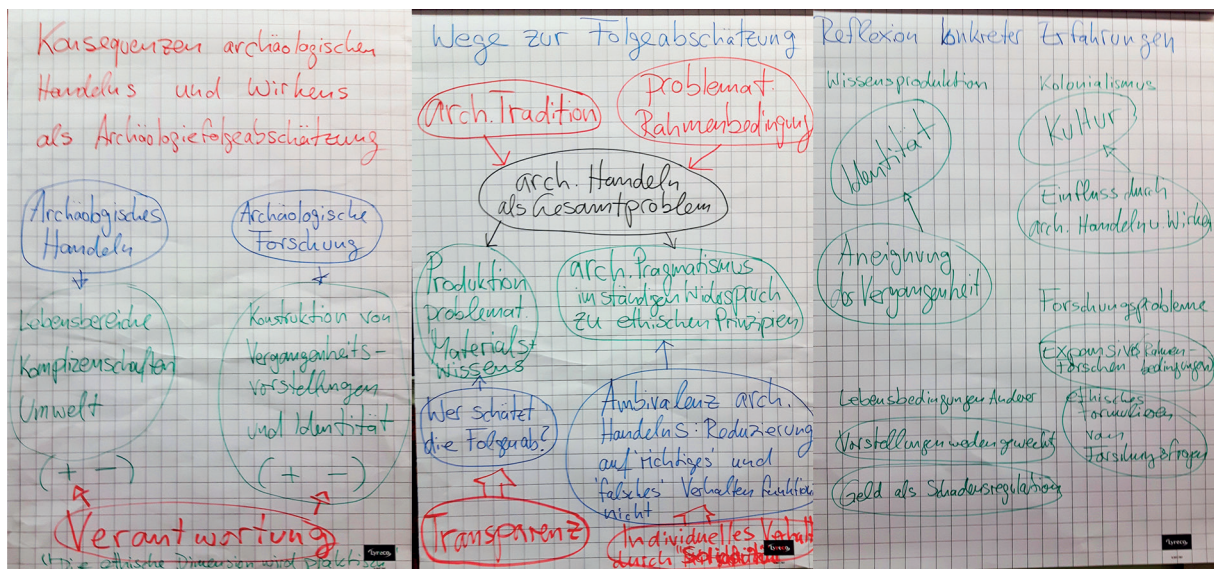 Konsequenzen archäologischen
Handelns und Wirkens
als Archäologiefolgeabschätzung
Archäologisches
Handeln
Archäologische
Forschung
Lebensbereiche
Komplizenschaften
Umwelt
(+ -)
Konstruktion von
Vergangenheits-
vorstellungen
und Identität
(+ -)
Verantwortung
Die ethische Dimension wird praktisch
Wege zur Folgeabschätzung
arch. Tradition
problemat.
Rahmenbedingung
arch. Handeln
als Gesamtproblem
Produktion
problemat.
Materials+
Wissens
arch. Pragmatismus
im ständigen Widerspruch
zu ethischen Prinzipien
Wer schätzt
die Folgen ab?
Ambivalenz arch.
Handelns: Reduzierung
auf 'richtiges' und
'falsches' Verhalten funktion
nicht
Transparenz
Individuelles Verhalt
durch
Reflexion konkreter Erfahrungen
Wissensproduktion
Identität
Aneignung
der Vergangenheit
Lebensbedingungen Anderer
Vorstellungen werden geweckt
Geld als Schadensregulation
Kolonialismus
Kultur?
Einfluss durch
arch. Handeln u. Wirken
Forschungsprobleme
Expansives Rahmen-
forschen bedingungen
ethisches
formulieren
von
Forschungsfragen